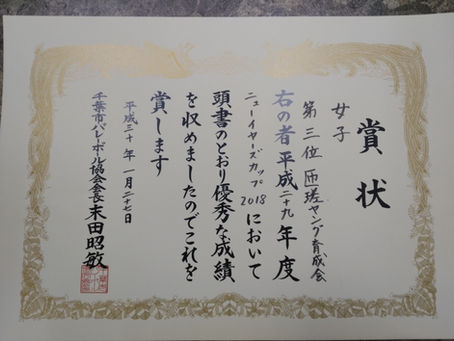 賞状
女子
第三位 匝瑳ヤング育成会
右の者平成二十九年度
ニューイヤーズカップ2018において
頭書のとおり優秀な成績
を収めましたのでこれを
賞します
平成三十年一月二十七日
千葉市バレーボール協会会長 末田昭敏